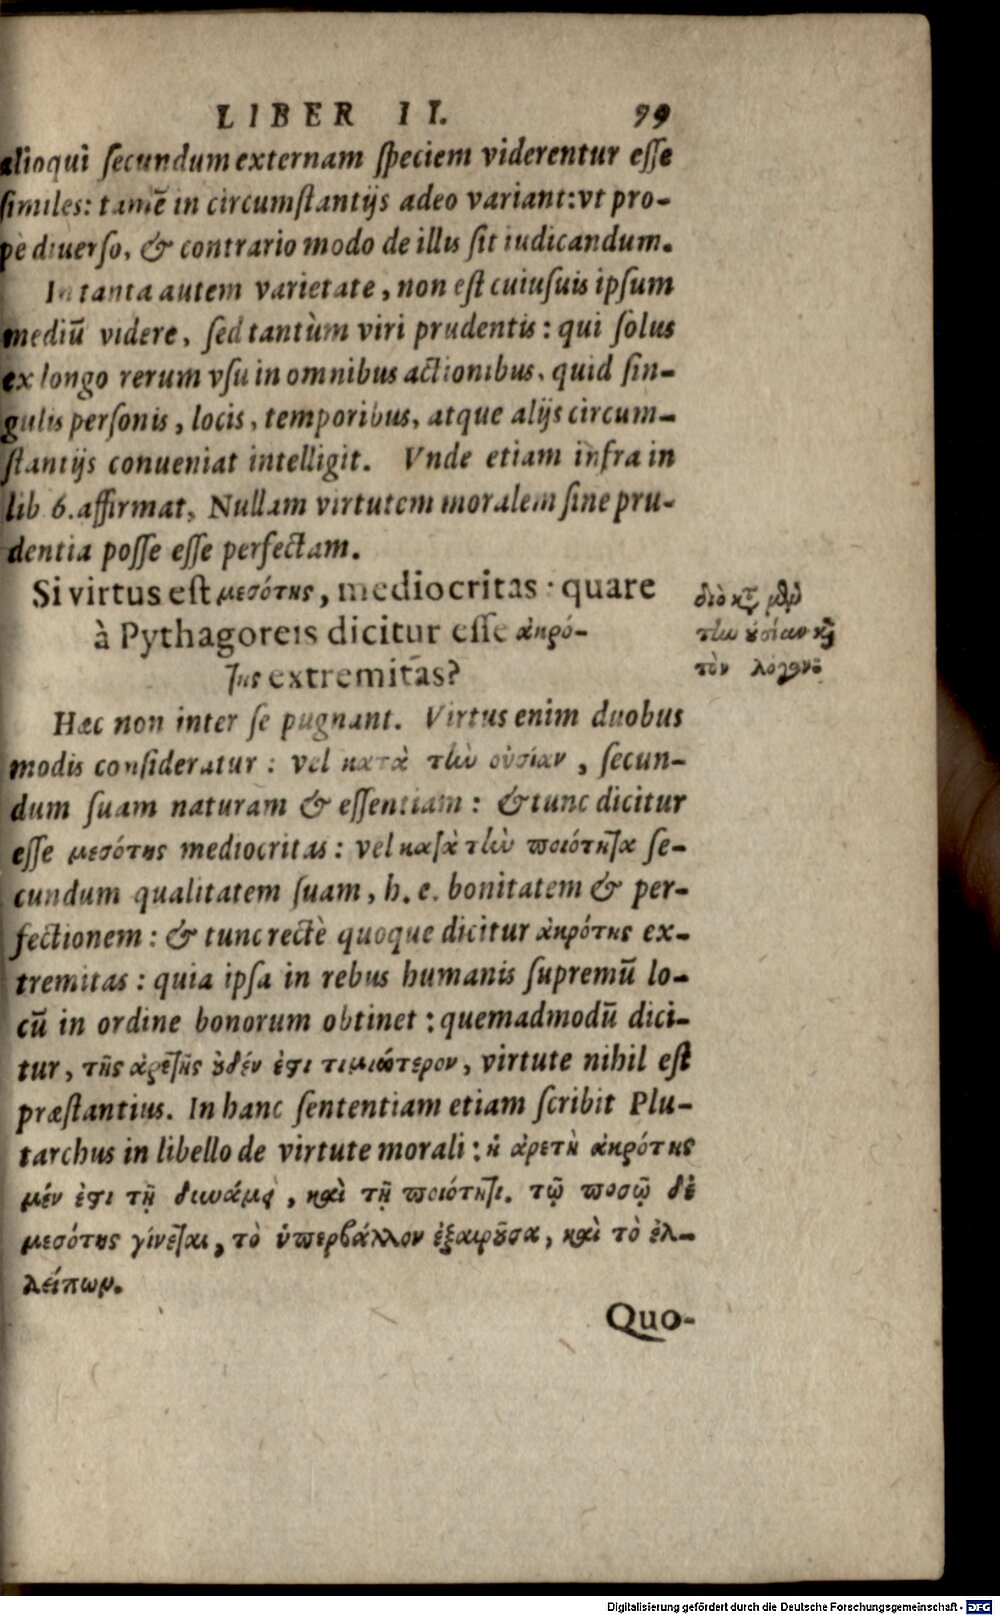 LIBER II. 99
alioqui secundum externam speciem viderentur esse
similes: tamē in circumstantijs adeo variant: vt pro-
pè diuerso, & contrario modo de illis sit iudicandum.
In tanta autem varietate, non est cuiusuis ipsum
mediū videre, sed tantùm viri prudentis: qui solus
ex longo rerum vsu in omnibus actionibus, quid sin-
gulis personis, locis, temporibus, atque alijs circum-
stantijs conueniat intelligit. Vnde etiam infra in
lib 6. affirmat, Nullam virtutem moralem sine pru-
dentia posse esse perfectam.
Si virtus est μεσότης, mediocritas: quare
à Pythagoreis dicitur esse ἀκρό-
της extremitas?
διὸ κτ̀ μθρ̀
τὴν οὐσίαν καὶ
τὸν λόγον
Hæc non inter se pugnant. Virtus enim duobus
modis consideratur: vel κατὰ τὴν οὐσίαν, secun-
dum suam naturam & essentiam: & tunc dicitur
esse μεσότης mediocritas: vel κατὰ τὴν ποιότητα se-
cundum qualitatem suam, h. e. bonitatem & per-
fectionem: & tunc rectè quoque dicitur ἀκρότης ex-
tremitas: quia ipsa in rebus humanis supremū lo-
cū in ordine bonorum obtinet: quemadmodū dici-
tur, τῆς ἀρετῆς οὐδέν ἐστι τιμιώτερον, virtute nihil est
præstantius. In hanc sententiam etiam scribit Plu-
tarchus in libello de virtute morali: ἡ ἀρετὴ ἀκρότης
μέν ἐστι τῇ δυνάμει, καὶ τῇ ποιότητι. τῷ ποσῷ δὲ
μεσότης γίνεται, τὸ ὑπερβάλλον ἐξαιροῦσα, καὶ τὸ ἐλ-
λεῖπων.
Quo-
Digitalisierung gefördert durch die Deutsche Forschungsgemeinschaft - DFG